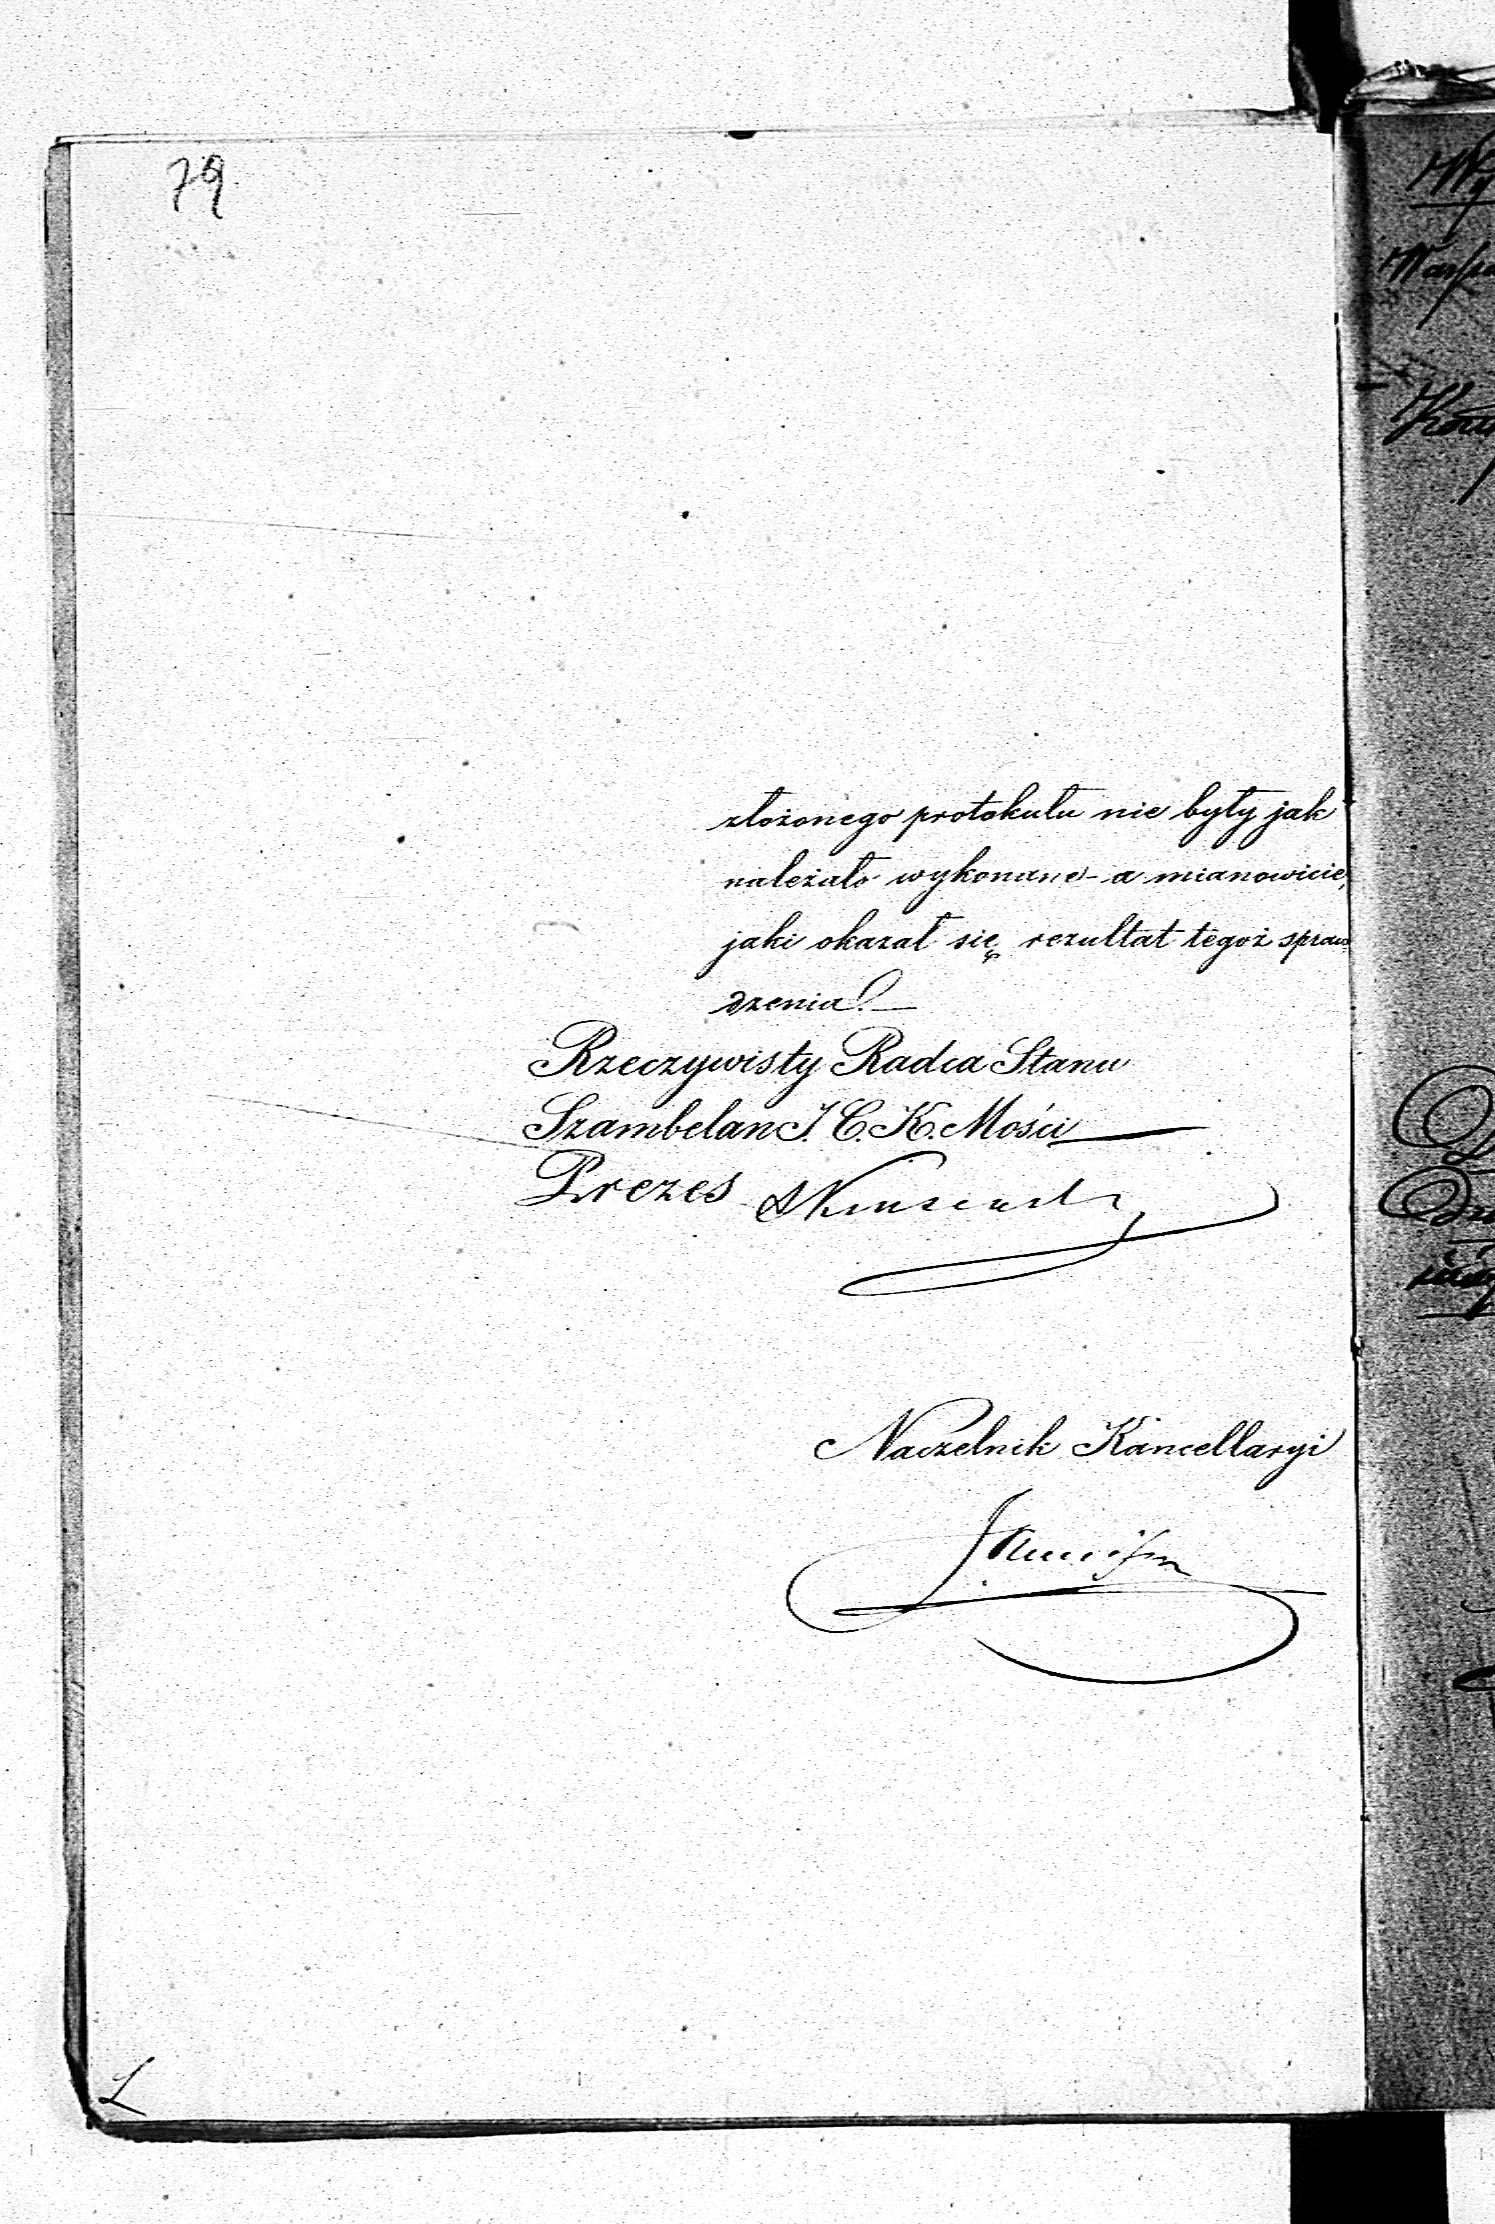 79
złożonego protokułu nie były jak
należało wykonane - a mianowicie,
jaki okazał się rezultat tegoż spraw=
dzenia. —
Rzeczywisty Radca Stanu
Szambelan J. C. K. Mości
Prezes
Naczelnik Kancellaryi
L